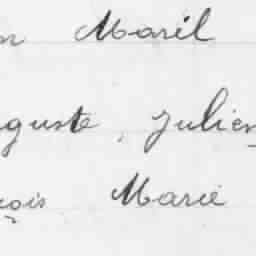 n Maril
guste, Julien
çois Marie